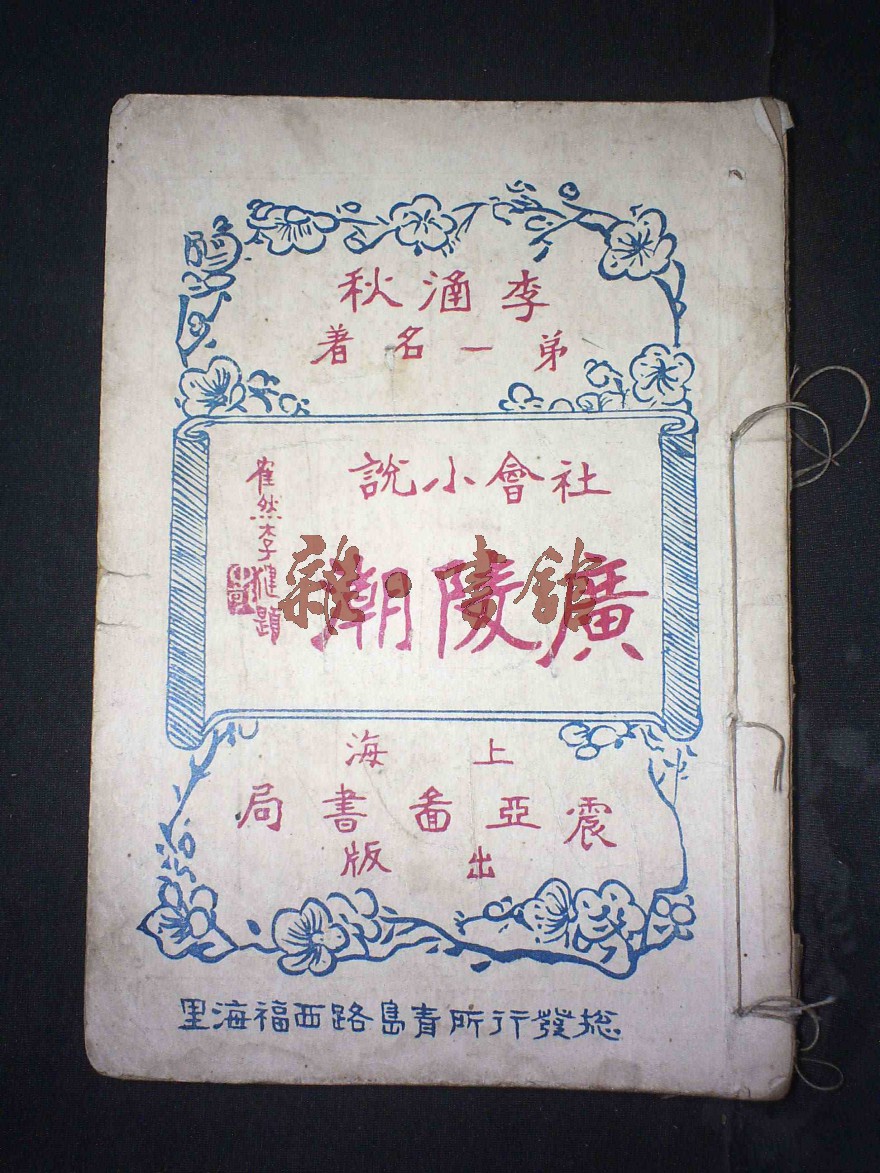 李涵秋
弟一名著
社會小說
廣陵潮
隺然李健題
上海
震亞啚書局
出版
捴發行所青島路西福海里